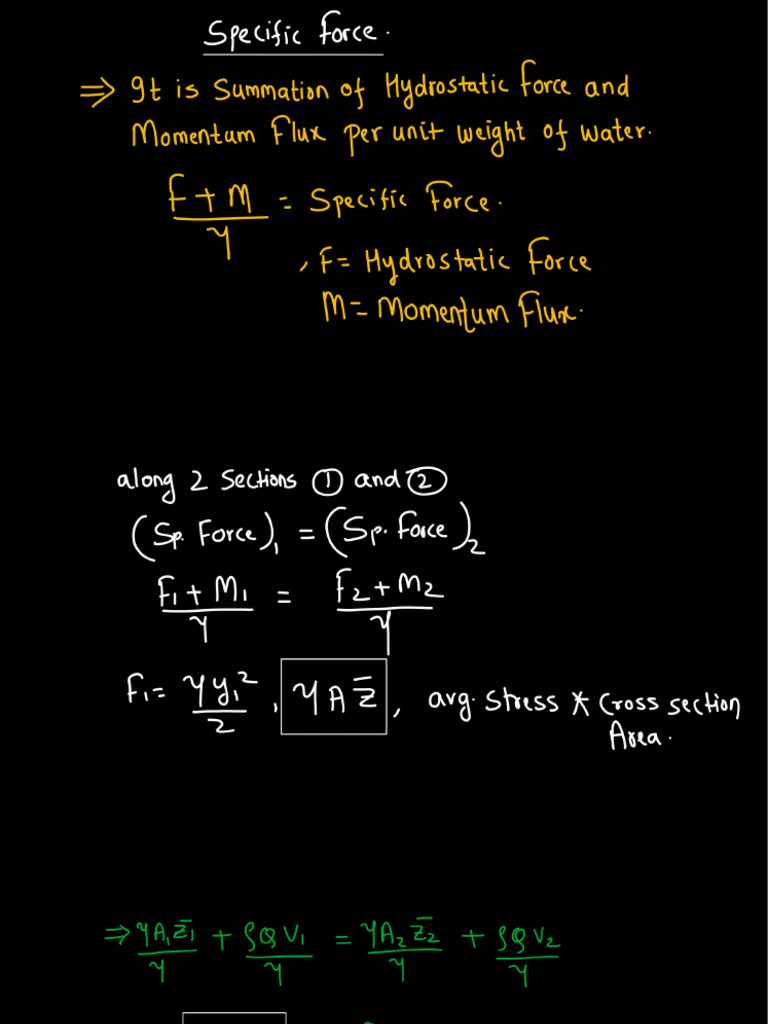 Specific Force.
⇒ It is Summation of Hydrostatic force and
Momentum Flux per unit weight of water.
(F + M)/γ = Specific Force.
, F = Hydrostatic Force
M = Momentum Flux.
along 2 Sections ① and ②
(Sp. Force)₁ = (Sp. Force)₂
(F₁ + M₁)/γ = (F₂ + M₂)/γ
F₁ = γy₁²/2 , γAz̄ , avg. Stress * Cross section
Area.
⇒ γA₁z̄₁/γ + ρQV₁/γ = γA₂z̄₂/γ + ρQV₂/γ